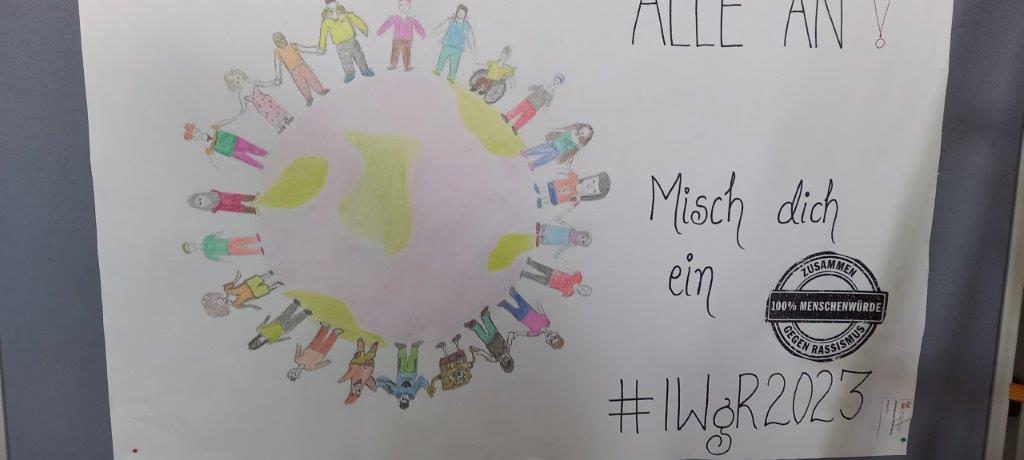 ALLE AN!
Misch dich
ein
ZUSAMMEN
100% MENSCHENWÜRDE
GEGEN RASSISMUS
#IWgR2023